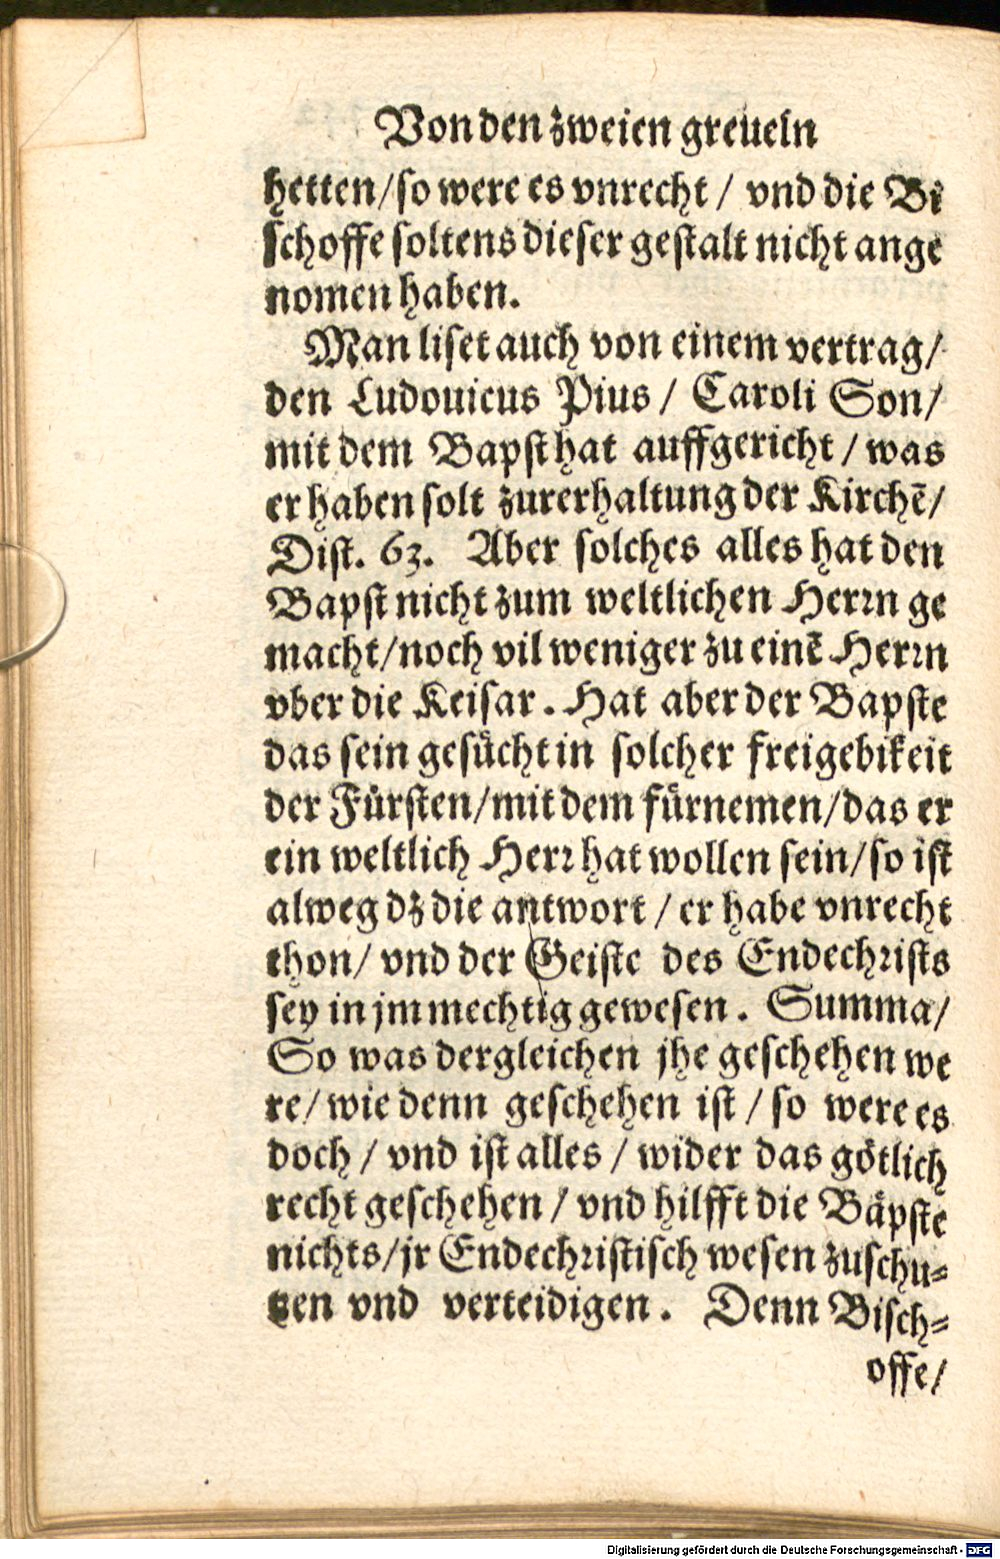 Von den zweien greueln
hetten/so were es vnrecht / vnd die Bi
schoffe soltens dieser gestalt nicht ange
nomen haben.
Man liset auch von einem vertrag/
den Ludouicus Pius / Caroli Son/
mit dem Bapst hat auffgericht / was
er haben solt zurerhaltung der Kirchē/
Dist. 63. Aber solches alles hat den
Bapst nicht zum weltlichen Herrn ge
macht/noch vil weniger zu einē Herrn
vber die Keisar. Hat aber der Bapste
das sein gesücht in solcher freigebikeit
der Fürsten/mit dem fürnemen/das er
ein weltlich Herr hat wollen sein/so ist
alweg dz die antwort / er habe vnrecht
thon/ vnd der Geiste des Endechrists
sey in jm mechtig gewesen. Summa/
So was dergleichen jhe geschehen we
re/ wie denn geschehen ist / so were es
doch / vnd ist alles / wider das götlich
recht geschehen / vnd hilfft die Bäpste
nichts/jr Endechristisch wesen zuschu-
tzen vnd verteidigen. Denn Bisch-
offe/
Digitalisierung gefördert durch die Deutsche Forschungsgemeinschaft - DFG